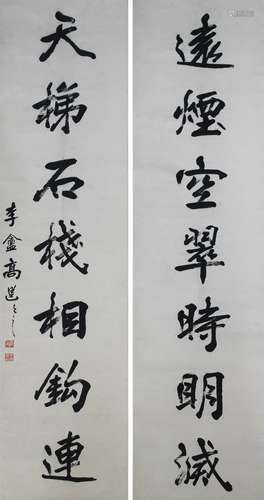 遠煙空翠時明滅
天梯石棧相鈎連
李盦高逕